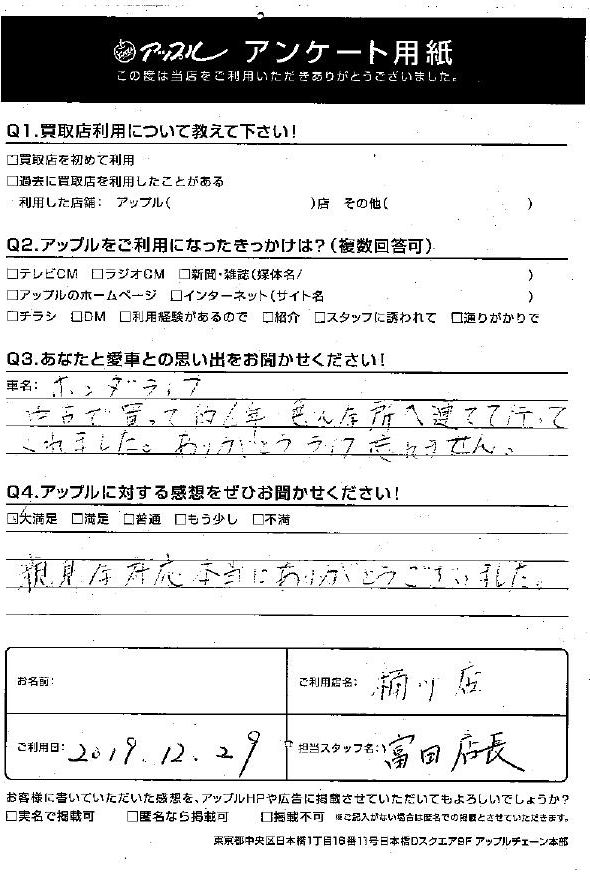 アップル アンケート用紙
この度は当店をご利用いただきありがとうございました。
Q1.買取店利用について教えて下さい!
□買取店を初めて利用
□過去に買取店を利用したことがある
利用した店舗: アップル( )店 その他( )
Q2.アップルをご利用になったきっかけは?(複数回答可)
□テレビCM □ラジオCM □新聞・雑誌(媒体名/ )
□アップルのホームページ □インターネット(サイト名 )
□チラシ □DM □利用経験があるので □紹介 □スタッフに誘われて □通りがかりで
Q3.あなたと愛車との思い出をお聞かせください!
車名: ホンダライフ
中古で買って約6年 色んな所へ連てて行って
くれました。ありがとうライフ忘れません。
Q4.アップルに対する感想をぜひお聞かせください!
☑大満足 □満足 □普通 □もう少し □不満
親身な対応本当にありがとうございました。
お名前:
ご利用店名: 桶川店
ご利用日: 2019.12.29
担当スタッフ名: 富田店長
お客様に書いていただいた感想を、アップルHPや広告に掲載させていただいてもよろしいでしょうか?
□実名で掲載可 □匿名なら掲載可 □掲載不可 ※ご記入がない場合は匿名での掲載とさせていただきます。
東京都中央区日本橋1丁目16番11号日本橋Dスクエア9F アップルチェーン本部